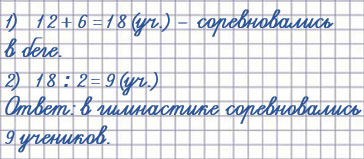 1) 12+6=18(уч.) – соревновались
в беге.
2) 18:2=9(уч.)
Ответ: в гимнастике соревновались
9 учеников.